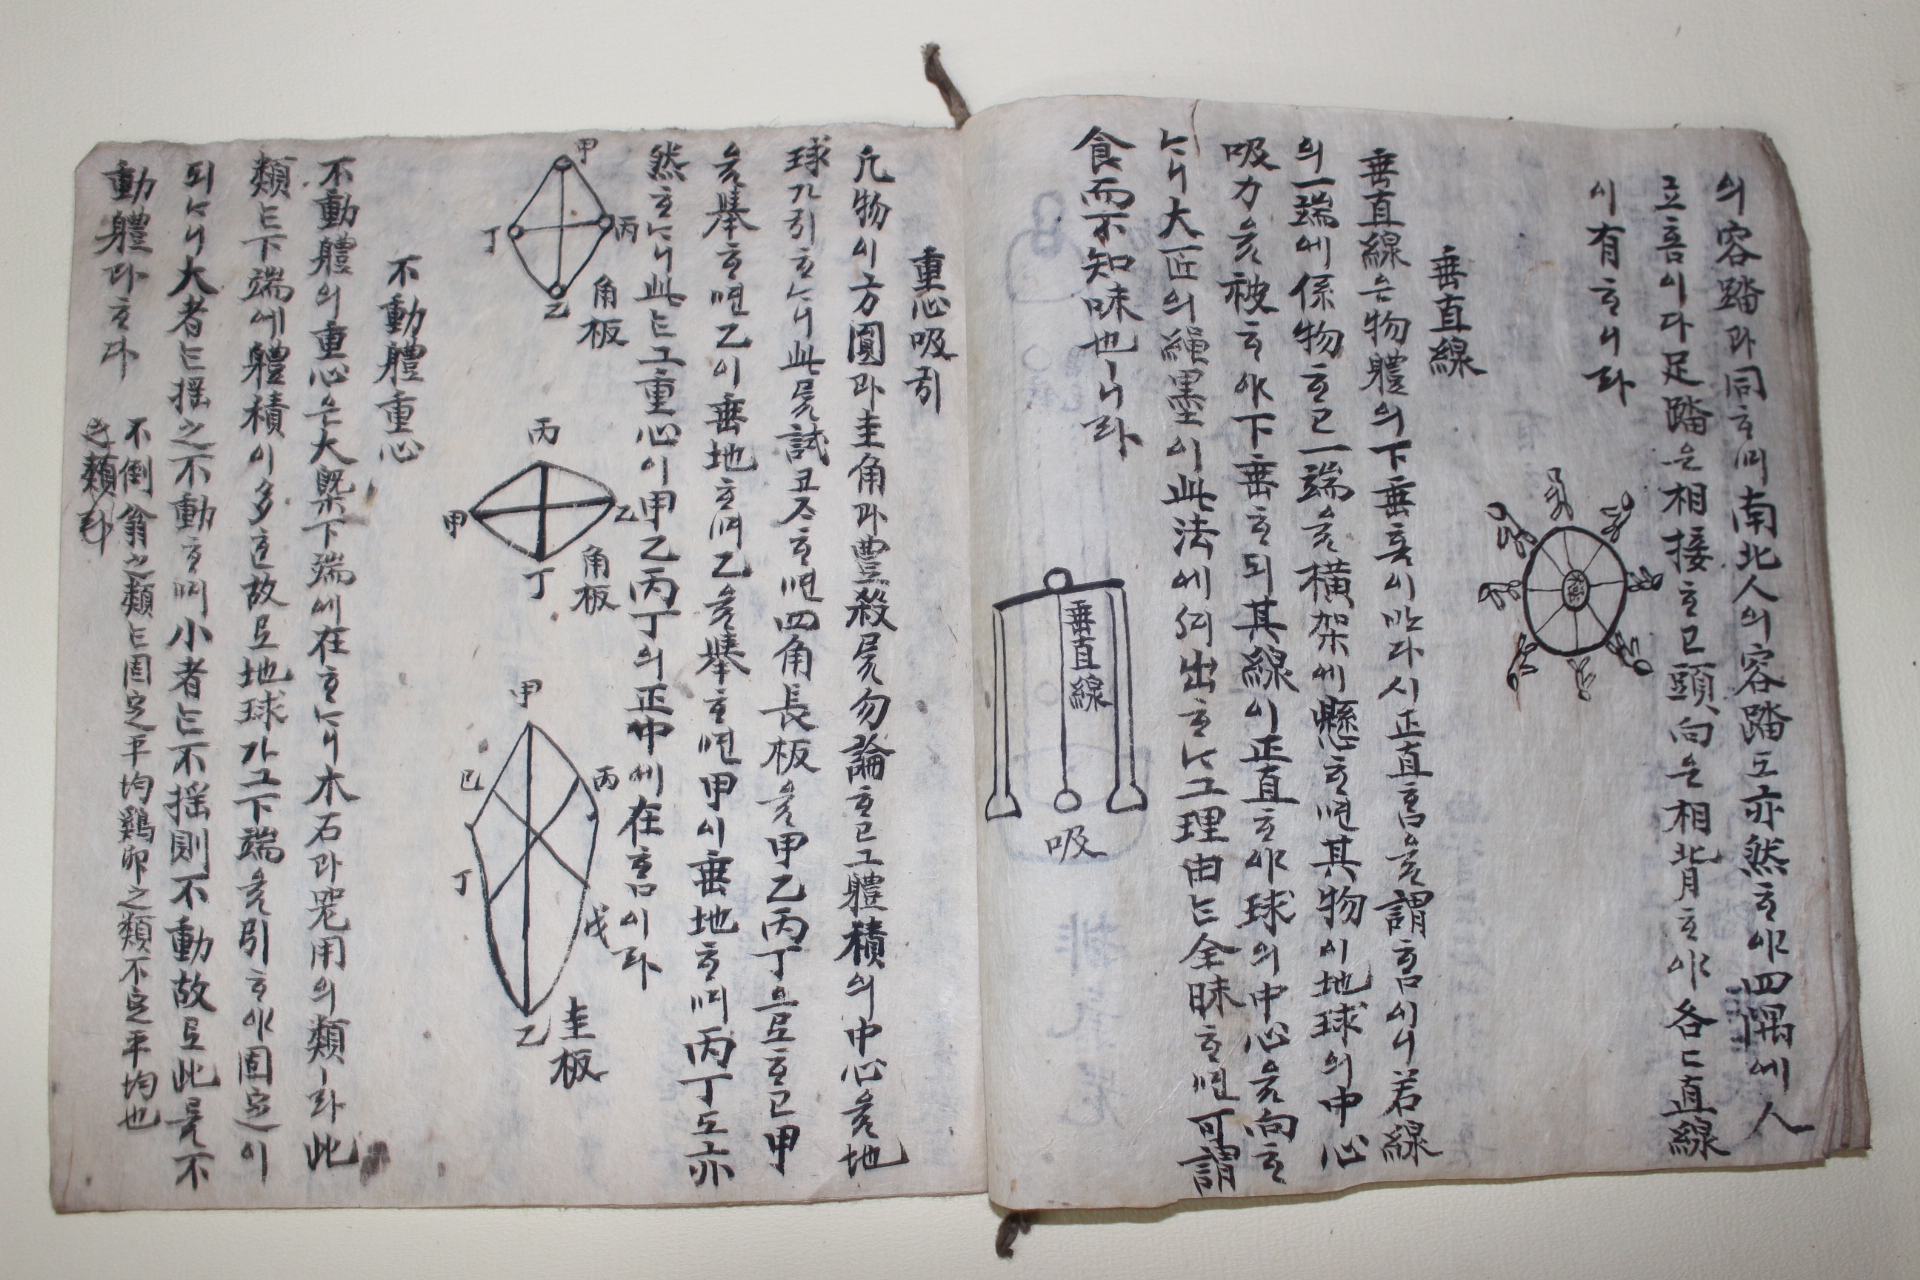 의容踏과同ᄒᆞ며南北人의容踏도亦然ᄒᆞ야四隅에人
立홈이다足踏은相接ᄒᆞ고頭向은相背ᄒᆞ야各々直線
이有ᄒᆞ니라
垂直線
垂直線은物體의下垂홈이반다시正直홈을謂홈이니若線
의一端에係物ᄒᆞ고一端을橫架에懸ᄒᆞ면其物이地球의中心
吸力을被ᄒᆞ야下垂ᄒᆞ되其線이正直ᄒᆞ야球의中心을向ᄒᆞ
ᄂᆞ니大匠의繩墨이此法에셔出ᄒᆞᄂᆞ그理由ᄂᆞᆫ全昧ᄒᆞ면可謂
食而不知味也ㅣ니라
垂直線
吸
重心吸引
凡物이方圓과圭角과豊殺을勿論ᄒᆞ고그體積의中心을地
球가引ᄒᆞᄂᆞ니此ᄅᆞᆯ試코ᄌᆞᄒᆞ면四角長板을甲乙丙丁으로ᄒᆞ고甲
을擧ᄒᆞ면乙이垂地ᄒᆞ며乙을擧ᄒᆞ면甲이垂地ᄒᆞ며丙丁도亦
然ᄒᆞᄂᆞ니此ᄂᆞᆫ그重心이甲乙丙丁의正中에在홈이라
甲
丙
丁
乙
角板
丙
甲
乙
丁
角板
甲
丙
已
丁
戊
乙
圭板
不動體重心
不動體의重心은大槩下端에在ᄒᆞᄂᆞ니木石과器用의類ㅣ라此
類ᄂᆞᆫ下端에體積이多ᄒᆞᆫ故로地球가그下端을引ᄒᆞ야固定이
되ᄂᆞ니大者ᄂᆞᆫ搖之不動ᄒᆞ며小者ᄂᆞᆫ不搖則不動故로此ᄅᆞᆯ不
動體라ᄒᆞ다
不倒翁之類ᄂᆞᆫ固定平均鷄卵之類不定平均也
類라